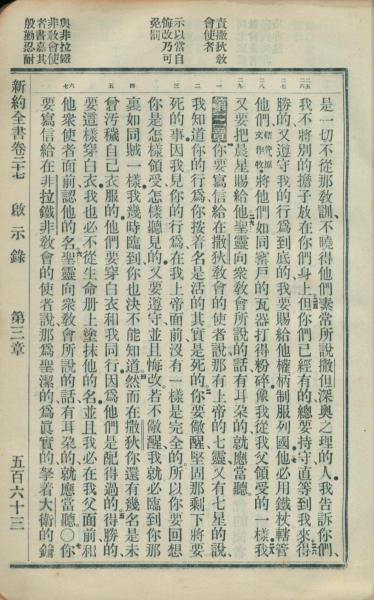 責撒狄敎
會使者
示以當自
悔改乃可
免罰
與非拉鐵
非敎會使
者書嘉其
殷勤忍耐
是一切不從那敎訓、不曉得他們素常所說撒但深奧之理的人、我告訴你們、
我不將別的擔子放在你們身上、但你們已經有的、總要持守、直等到我來、得
勝的、又遵守我的行爲到底的、我要賜給他權柄制服列國、他必用鐵杖轄管
他們、轄管原文作牧將他們如同窰戶的瓦器打得粉碎、像我從我父領受的一樣、我
又要把晨星賜給他、聖靈向衆敎會所說的話、有耳朶的就應當聽、
第三章你要寫信給在撒狄敎會的使者說、那有上帝的七靈、又有七星的說、
我知道你的行爲、你按着名是活的、其實是死的、你要儆醒、堅固那剩下將要
死的事、因我見你的行爲、在我上帝面前、沒有一樣是完全的、所以你要回想
你是怎樣領受、怎樣聽見的、又要遵守、並且悔改、若不儆醒、我就必臨到你那
裏、如同賊一樣、我幾時臨到你、也決不能知道、然而在撒狄你還有幾名是未
曾汚穢自己衣服的、他們要穿白衣和我同行、因爲他們是配得過的、得勝的
要這樣穿白衣、我也必不從生命册上塗抹他的名、並且我必在我父面前、和
他衆使者面前、認他的名、聖靈向衆敎會所說的話、有耳朶的就應當聽、〇你
要寫信給在非拉鐵非敎會的使者說、那爲聖潔的、爲眞實的、拏着大衛的鑰
新約全書卷二十七　啟示錄　第三章　五百六十三